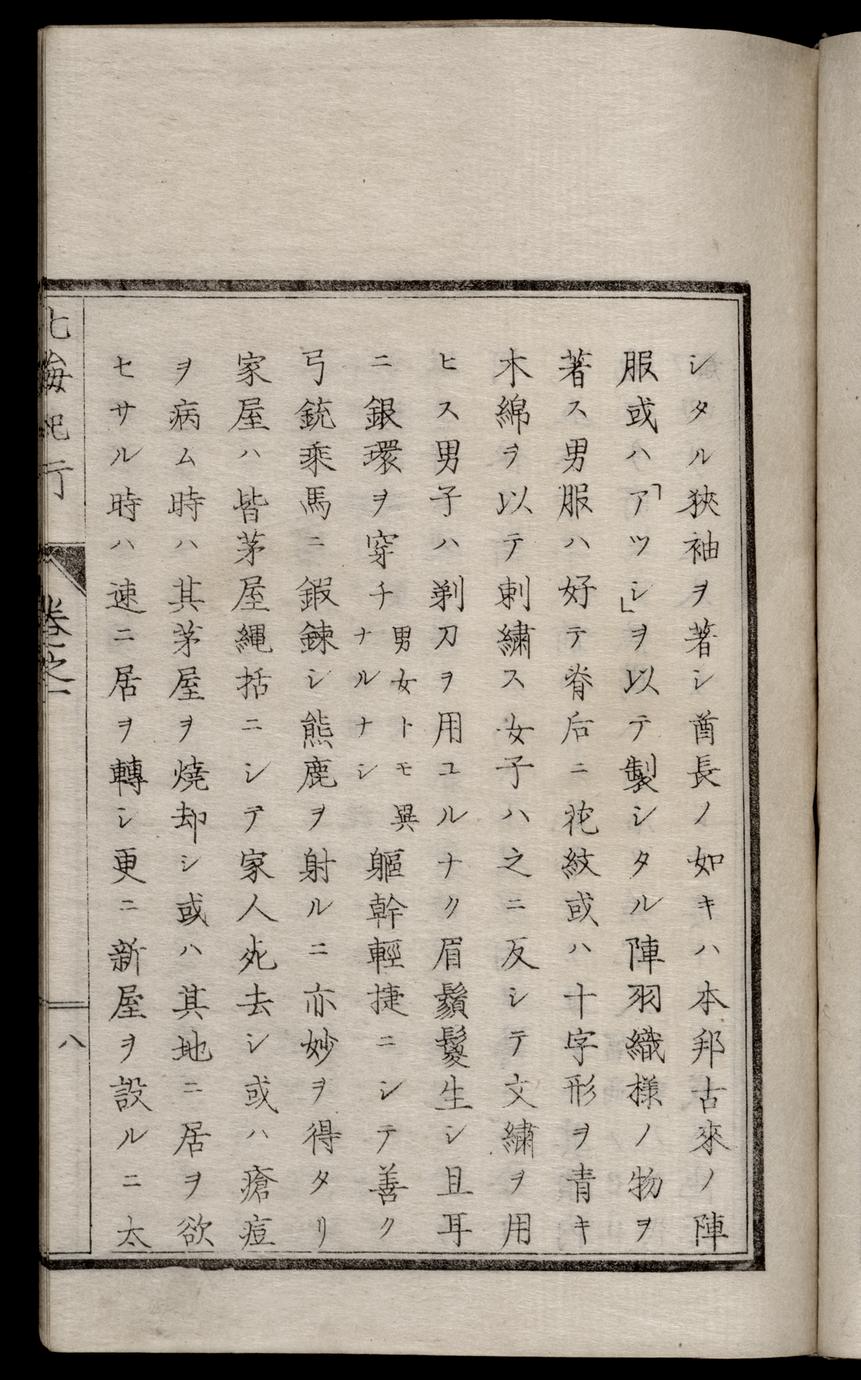 シタル狹袖ヲ著シ酋長ノ如キハ本邦古來ノ陣
服或ハ「アツシ」ヲ以テ製シタル陣羽織様ノ物ヲ
著ス男服ハ好テ脊后ニ花紋或ハ十字形ヲ青キ
木綿ヲ以テ刺繍ス女子ハ之ニ反シテ文繍ヲ用
ヒス男子ハ剃刀ヲ用ユルナク眉鬚鬘生シ且耳
ニ銀環ヲ穿チ男女トモ異ナルナシ軀幹輕捷ニシテ善ク
弓銃乘馬ニ鍜鍊シ熊鹿ヲ射ルニ亦妙ヲ得タリ
家屋ハ皆茅屋繩括ニシテ家人死去シ或ハ瘡痘
ヲ病ム時ハ其茅屋ヲ燒却シ或ハ其地ニ居ヲ欲
セサル時ハ速ニ居ヲ轉シ更ニ新屋ヲ設ルニ太
北海紀行
卷之一
八